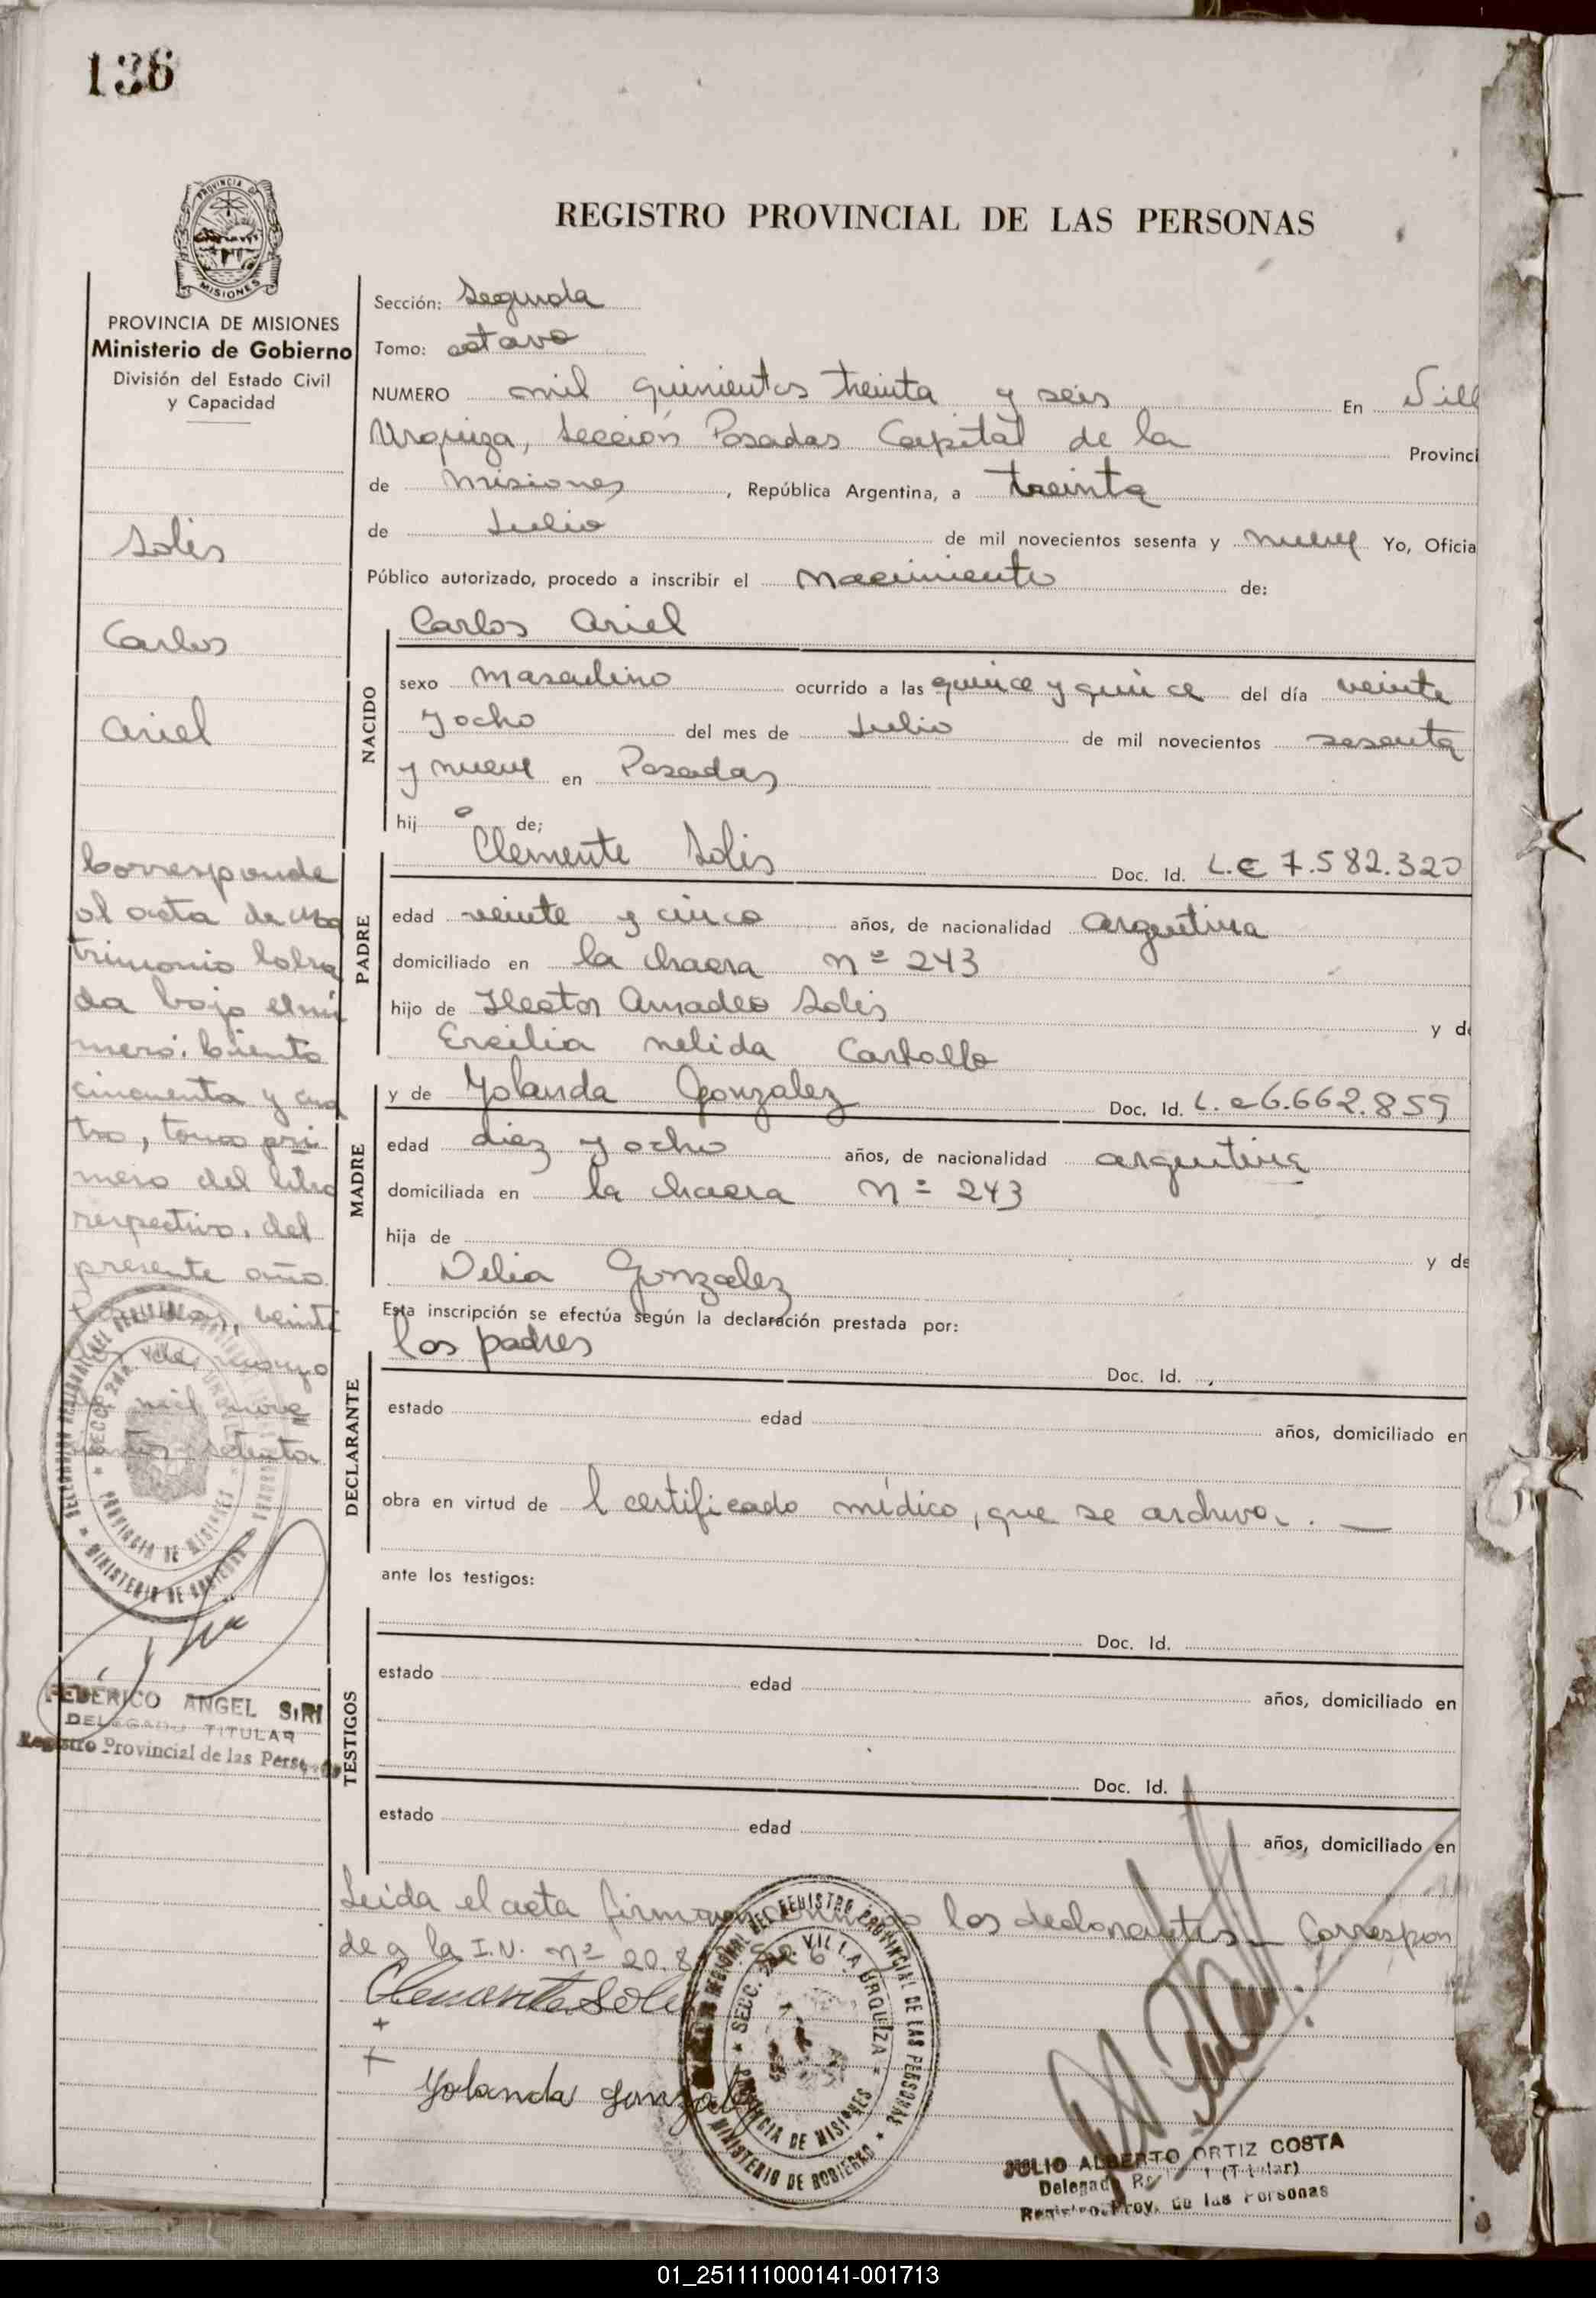 136
PROVINCIA DE
MISIONES
REGISTRO PROVINCIAL DE LAS PERSONAS
PROVINCIA DE MISIONES
Ministerio de Gobierno
División del Estado Civil
y Capacidad
Solis
Carlos
Ariel
Corresponde
al acta de Ma
trimonio labra
da bajo el nú
mero: Ciento
cincuenta y cua
tro, tomo pri
mero del libro
respectivo, del
presente año
veinte
marzo
mil nove
setenta
FEDERICO ANGEL SIRI
DELEGADO TITULAR
Registro Provincial de las Personas
Sección: Segunda
Tomo: octavo
NUMERO mil quinientos treinta y seis En Vill
Urquiza, Sección Posadas Capital de la Provinci
de Misiones, República Argentina, a treinta
de Julio de mil novecientos sesenta y nueve Yo, Oficia
Público autorizado, procedo a inscribir el Nacimiento de:
NACIDO
Carlos Ariel
sexo masculino ocurrido a las quince y quince del día veinte
y ocho del mes de Julio de mil novecientos sesenta
y nueve en Posadas
hij o de;
PADRE
Clemente Solis Doc. Id. L.E 7.582.320
edad veinte y cinco años, de nacionalidad argentina
domiciliado en la chacra nº 243
hijo de Hector Amadeo Solis y de
Ercilia Nelida Carballo
MADRE
y de Yolanda Gonzalez Doc. Id. L.e 6.662.859
edad diez y ocho años, de nacionalidad argentina
domiciliada en la chacra nº 243
hija de y de
Delia Gonzalez
Esta inscripción se efectúa según la declaración prestada por:
DECLARANTE
los padres Doc. Id.
estado edad años, domiciliado en
obra en virtud de l certificado médico, que se archiva. —
ante los testigos:
TESTIGOS
Doc. Id.
estado edad años, domiciliado en
Doc. Id.
estado edad años, domiciliado en
Leida el acta firman conmigo los declarantes— Correspon
de a la I.N. nº 20.8
Clemente Solis
Yolanda Gonzalez
SECC. 2da. VILLA URQUIZA
PROVINCIA DE MISIONES
MINISTERIO DE GOBIERNO
JULIO ALBERTO ORTIZ COSTA
Delegado (Titular)
Registro Prov. de las Personas
01_251111000141-001713